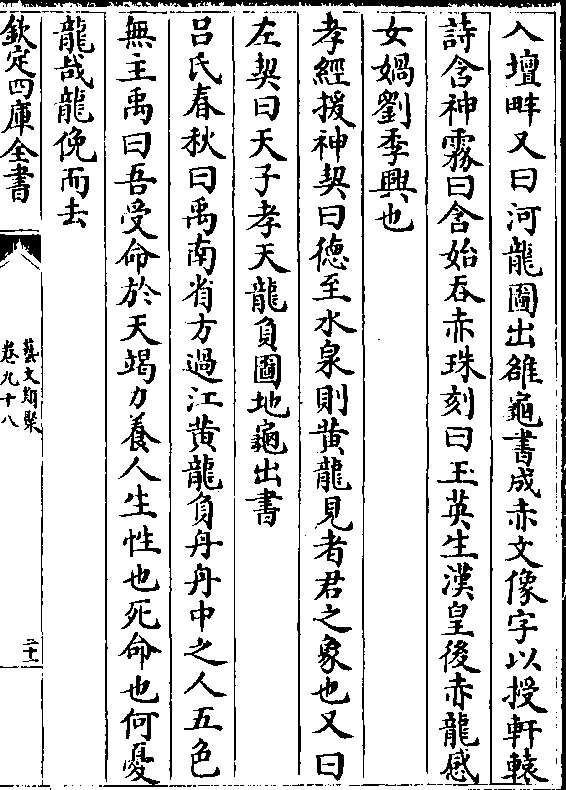 入壇畔又曰河龍圖出雒龜書成赤文像字以授軒轅
詩含神霧曰含始吞赤珠刻曰玉英生漢皇後赤龍感
女媧劉季興也
孝經援神契曰德至水泉則黄龍見者君之象也又曰
左契曰天子孝天龍負圖地龜出書
吕氏春秋曰禹南省方過江黄龍負舟舟中之人五色
無主禹曰吾受命於天竭力養人生性也死命也何憂
龍哉龍俛而去
欽定四庫全書
藝文類聚
卷九十八
二十